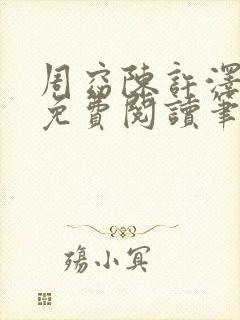 周窈陳許澤
免費閱讀筆
殤小冥